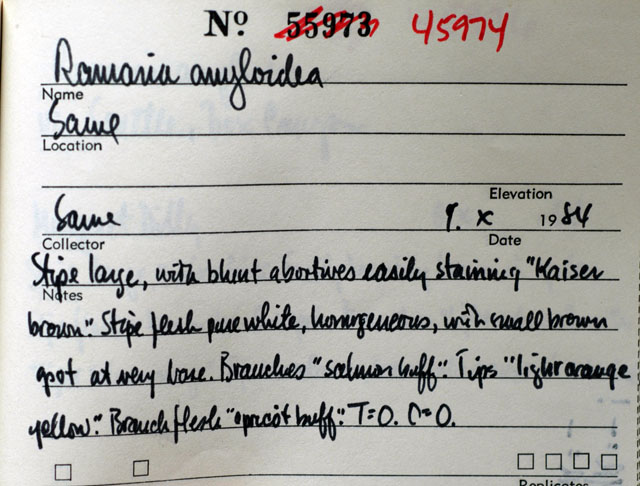 Nº 55973 45974
Ramaria amyloidea
Name
Same
Location
Elevation
Same 9. X 1984
Collector Date
Stipe large, with blunt abortives easily staining "Kaiser
Notes
brown". Stipe flesh pure white, homogeneous, with small brown
spot at very base. Branches "salmon buff". Tips "light orange
yellow". Branch flesh "apricot buff". T=0. C=0.
Replicates